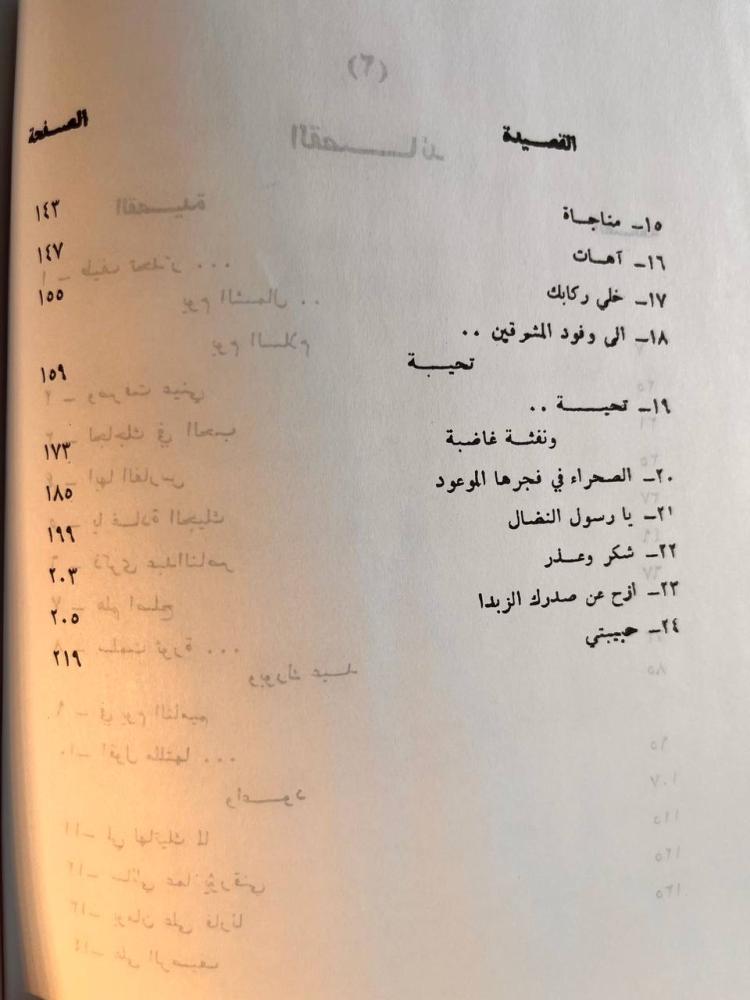 القصيدة الصفحة
١٥ـ مناجاة ١٤٣
١٦ـ آهات ١٤٧
١٧ـ خلي ركابك ١٥٥
١٨ـ الى وفود المشرقين ..
تحيـة ١٥٩
١٩ـ تحيـة ..
ونفثة غاضبة ١٧٣
٢٠ـ الصحراء في فجرها الموعود ١٨٥
٢١ـ يا رسول النضال ١٩٩
٢٢ـ شكر وعذر ٢٠٣
٢٣ـ ازح عن صدرك الزبدا ٢٠٥
٢٤ـ حبيبتي ٢١٩